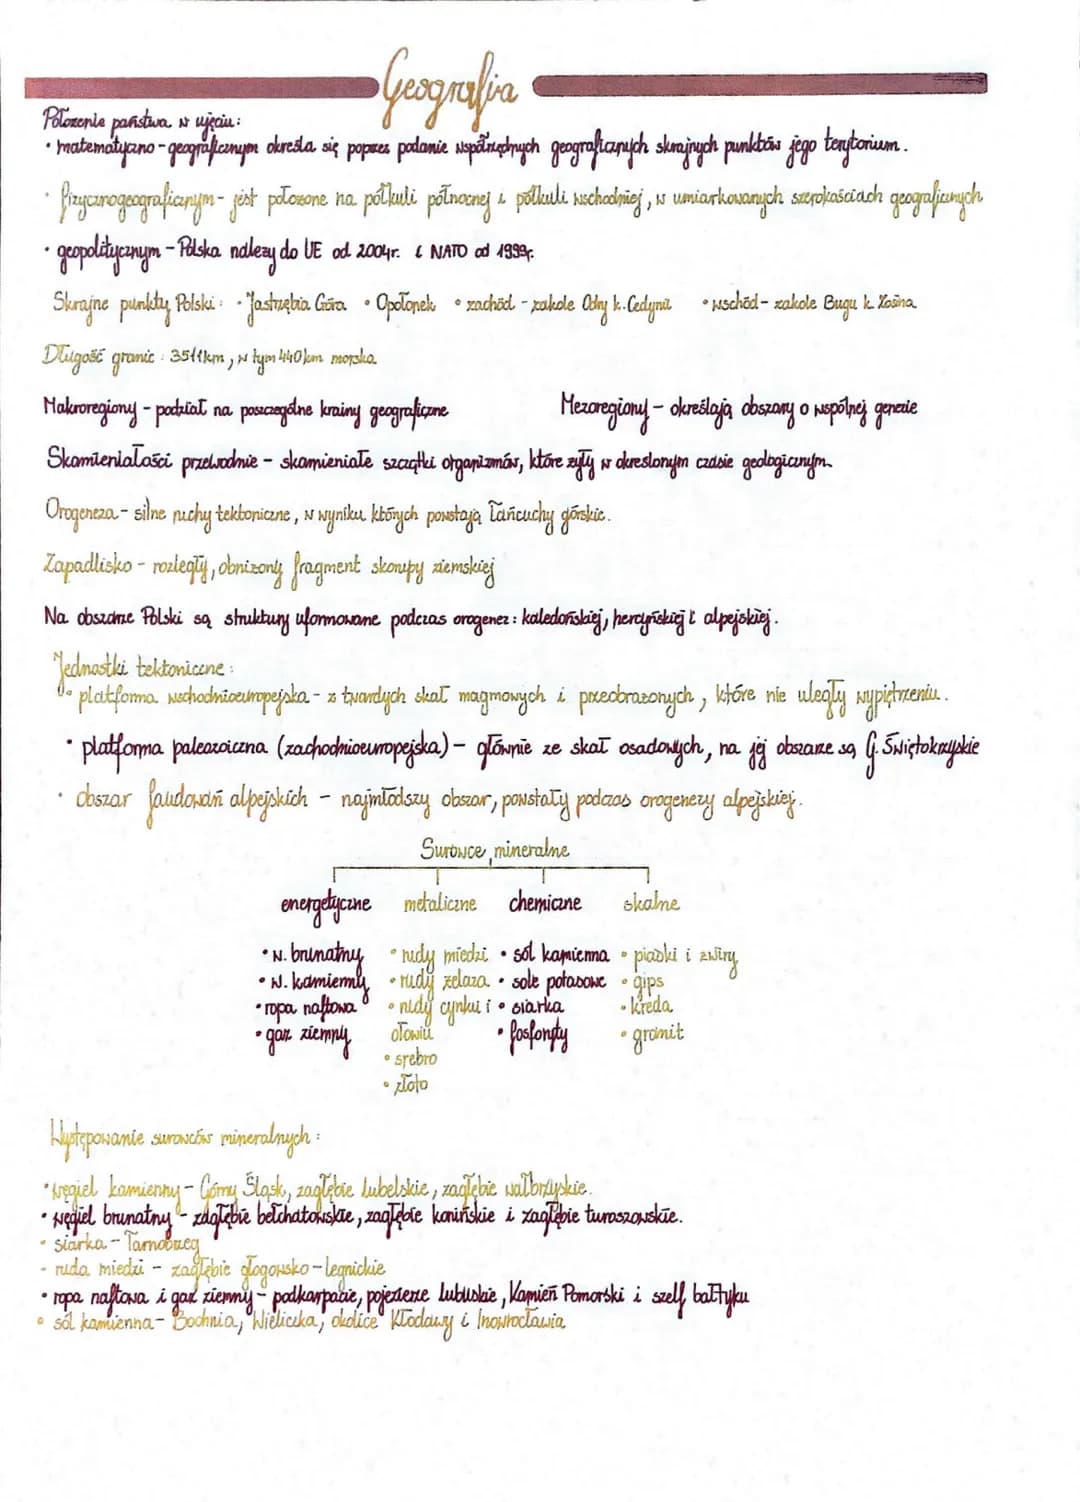 Geografia
Położenie państwa w ujęciu:
• matematyczno-geograficznym określa się poprzez podanie współrzędnych geograficznych skrajnych punktów jego terytorium.
• fizycznogeograficznym - jest położone na półkuli północnej i półkuli wschodniej, w umiarkowanych szerokościach geograficznych
• geopolitycznym - Polska należy do UE od 2004r. i NATO od 1999r.
Skrajne punkty Polski: • Jastrzębia Góra • Opołonek • zachód - zakole Odry k. Cedynii • wschód - zakole Bugu k. Zosina
Długość granic: 3511km, w tym 440km morska
Makroregiony - podział na poszczególne krainy geograficzne Mezoregiony - określają obszary o wspólnej genezie
Skamieniałości przewodnie - skamieniałe szczątki organizmów, które żyły w określonym czasie geologicznym.
Orogeneza - silne ruchy tektoniczne, w wyniku których powstają łańcuchy górskie.
Zapadlisko - rozległy, obniżony fragment skorupy ziemskiej
Na obszarze Polski są struktury uformowane podczas orogenez: kaledońskiej, hercyńskiej i alpejskiej.
Jednostki tektoniczne:
• platforma wschodnioeuropejska - z twardych skał magmowych i przeobrażonych, które nie uległy wypiętrzeniu.
• platforma paleozoiczna (zachodnioeuropejska) - głównie ze skał osadowych, na jej obszarze są G. Świętokrzyskie
• obszar fałdowań alpejskich - najmłodszy obszar, powstały podczas orogenezy alpejskiej.
Surowce mineralne
energetyczne metaliczne chemiczne skalne
• w. brunatny • rudy miedzi • sól kamienna • piaski i żwiry
• w. kamienny • rudy żelaza • sole potasowe • gips
• ropa naftowa • rudy cynku i • siarka • kreda
• gaz ziemny ołowiu • fosforyty • granit
• srebro
• złoto
Występowanie surowców mineralnych:
• węgiel kamienny - Górny Śląsk, zagłębie lubelskie, zagłębie wałbrzyskie.
• węgiel brunatny - zagłębie bełchatowskie, zagłębie konińskie i zagłębie turoszowskie.
• siarka - Tarnobrzeg
• ruda miedzi - zagłębie głogowsko-legnickie
• ropa naftowa i gaz ziemny - podkarpacie, pojezierze lubuskie, Kamień Pomorski i szelf bałtyku
• sól kamienna - Bochnia, Wieliczka, okolice Kłodawy i Inowrocławia